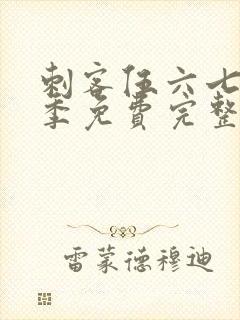 刺客伍六七
季免费完整
雷蒙德穆迪